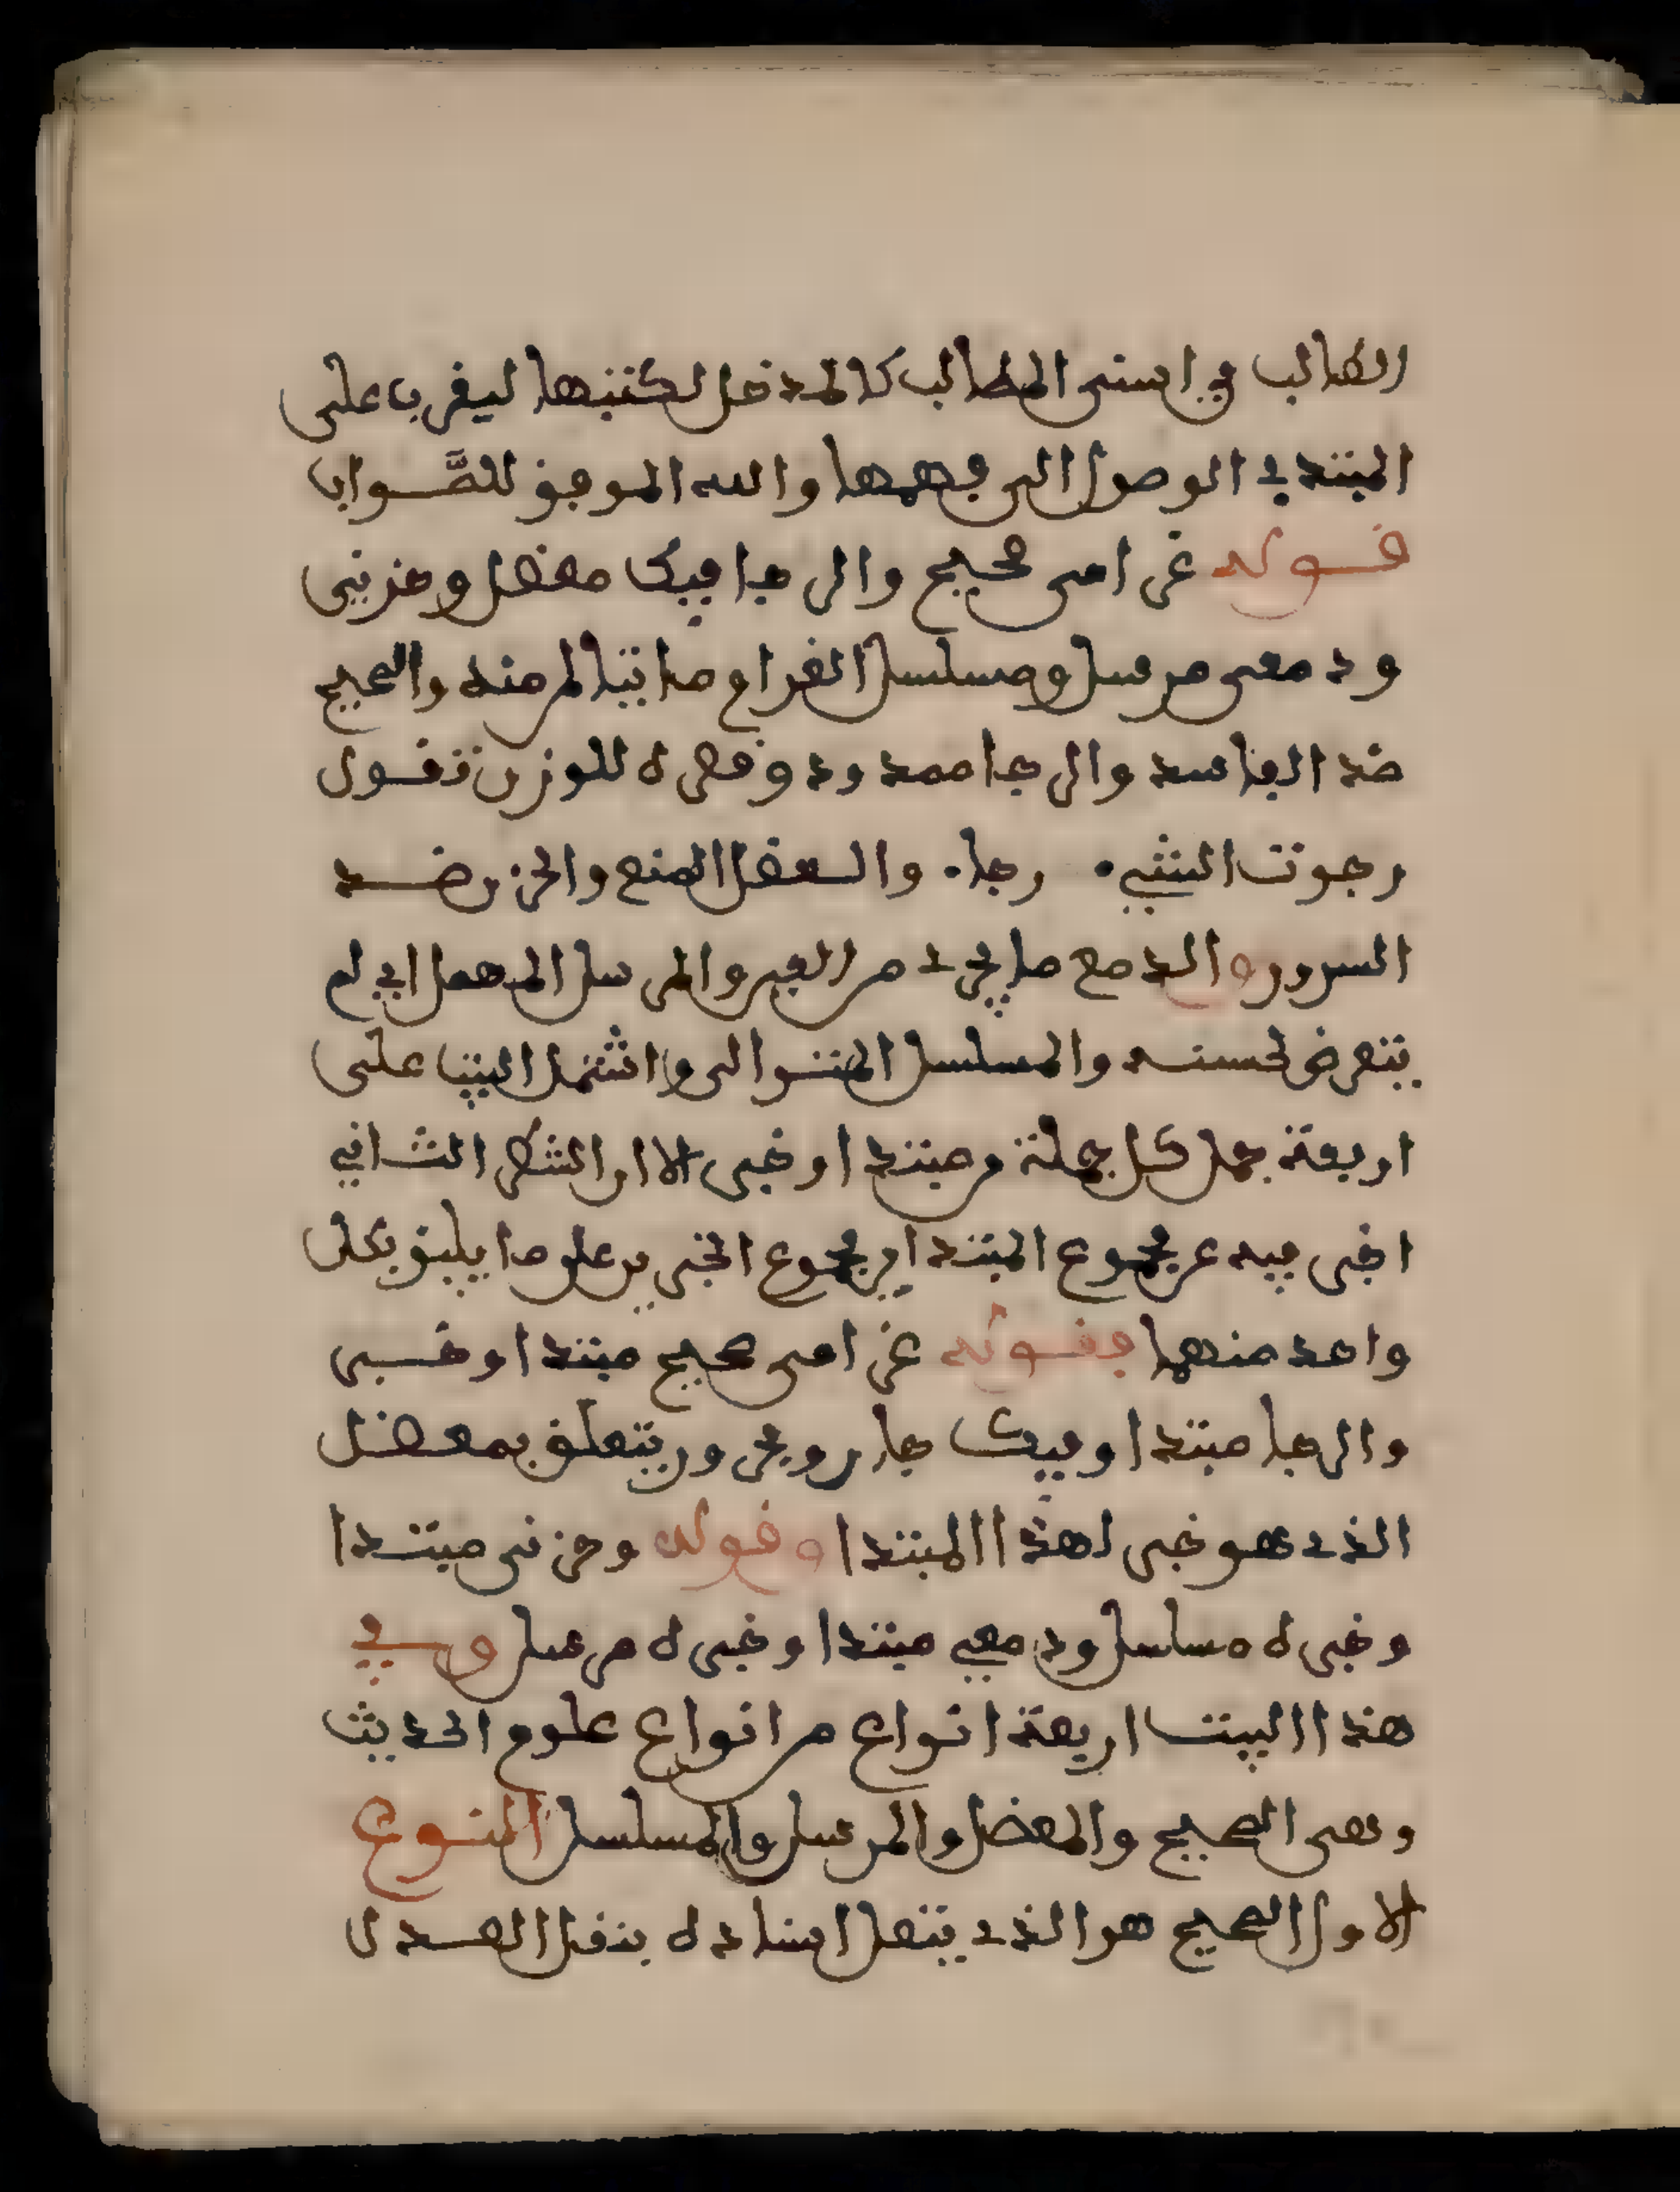 الطالب في اسنى المطالب كالمدخل لكتبها ليقرب على
المبتدي الوصول الى فهمها والله الموفق للصَّواب
قوله غرامى صحيح والرجا فيك معضل وحزني
ودمعى مرسل ومسلسل الغرام ما يتالم منه والصحيح
ضد الفاسد والرجا ممدود وقصره للوزن تقول
رجوت الشيء رجا. والعضل المنع والحزن ضد
السرور والدمع ما يجري من العين والمرسل المهمل اي لم
يتعرض لحبسه والمسلسل المتوالى واشتمل البيت على
اربعة جمل كل جملة من مبتدا وخبر الا ان الشطر الثاني
اخبر فيه عن مجموع المبتداين بمجموع الخبرين على ما يليق بكل
واحد منهما فقوله غرامى صحيح مبتدا وخبر
والرجا مبتدا وفيك جار ومجرور يتعلق بمعضل
الذي هو خبر لهذا المبتدا وقوله وحزنى مبتدا
وخبره مسلسل ودمعي مبتدا وخبره مرسل وفي
هذا البيت اربعة انواع من انواع علوم الحديث
وهى الصحيح والمعضل والمرسل والمسلسل النوع
الاول الصحيح هو الذي يتصل اسناده بنقل العدل